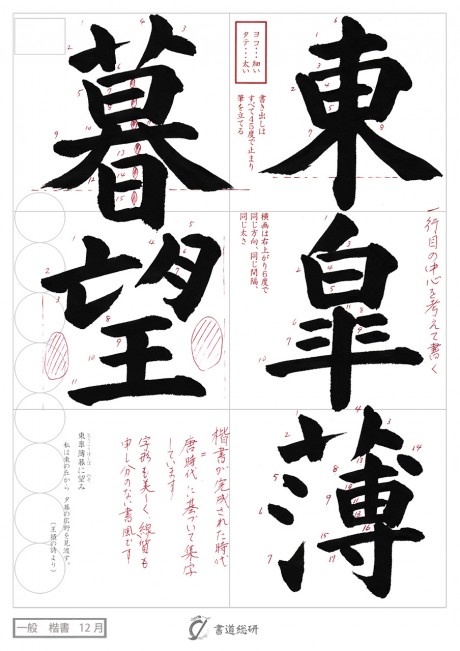 東皐薄
暮望
ヨコ・・・細い
タテ・・・太い
書き出しは
すべて45度で止まり
筆を立てる
横画は右上がり6度で
同じ方向、同じ間隔、
同じ太さ
一行目の中心を考えて書く
楷書が完成された時代
=
唐時代に基づいて集字
しています
字形も美しく線質も
申し分のない書風です
東皐薄暮に望み
私は東の丘から、夕暮の広野を見渡す。
(王績の詩より)
一般 楷書 12月
書道総研